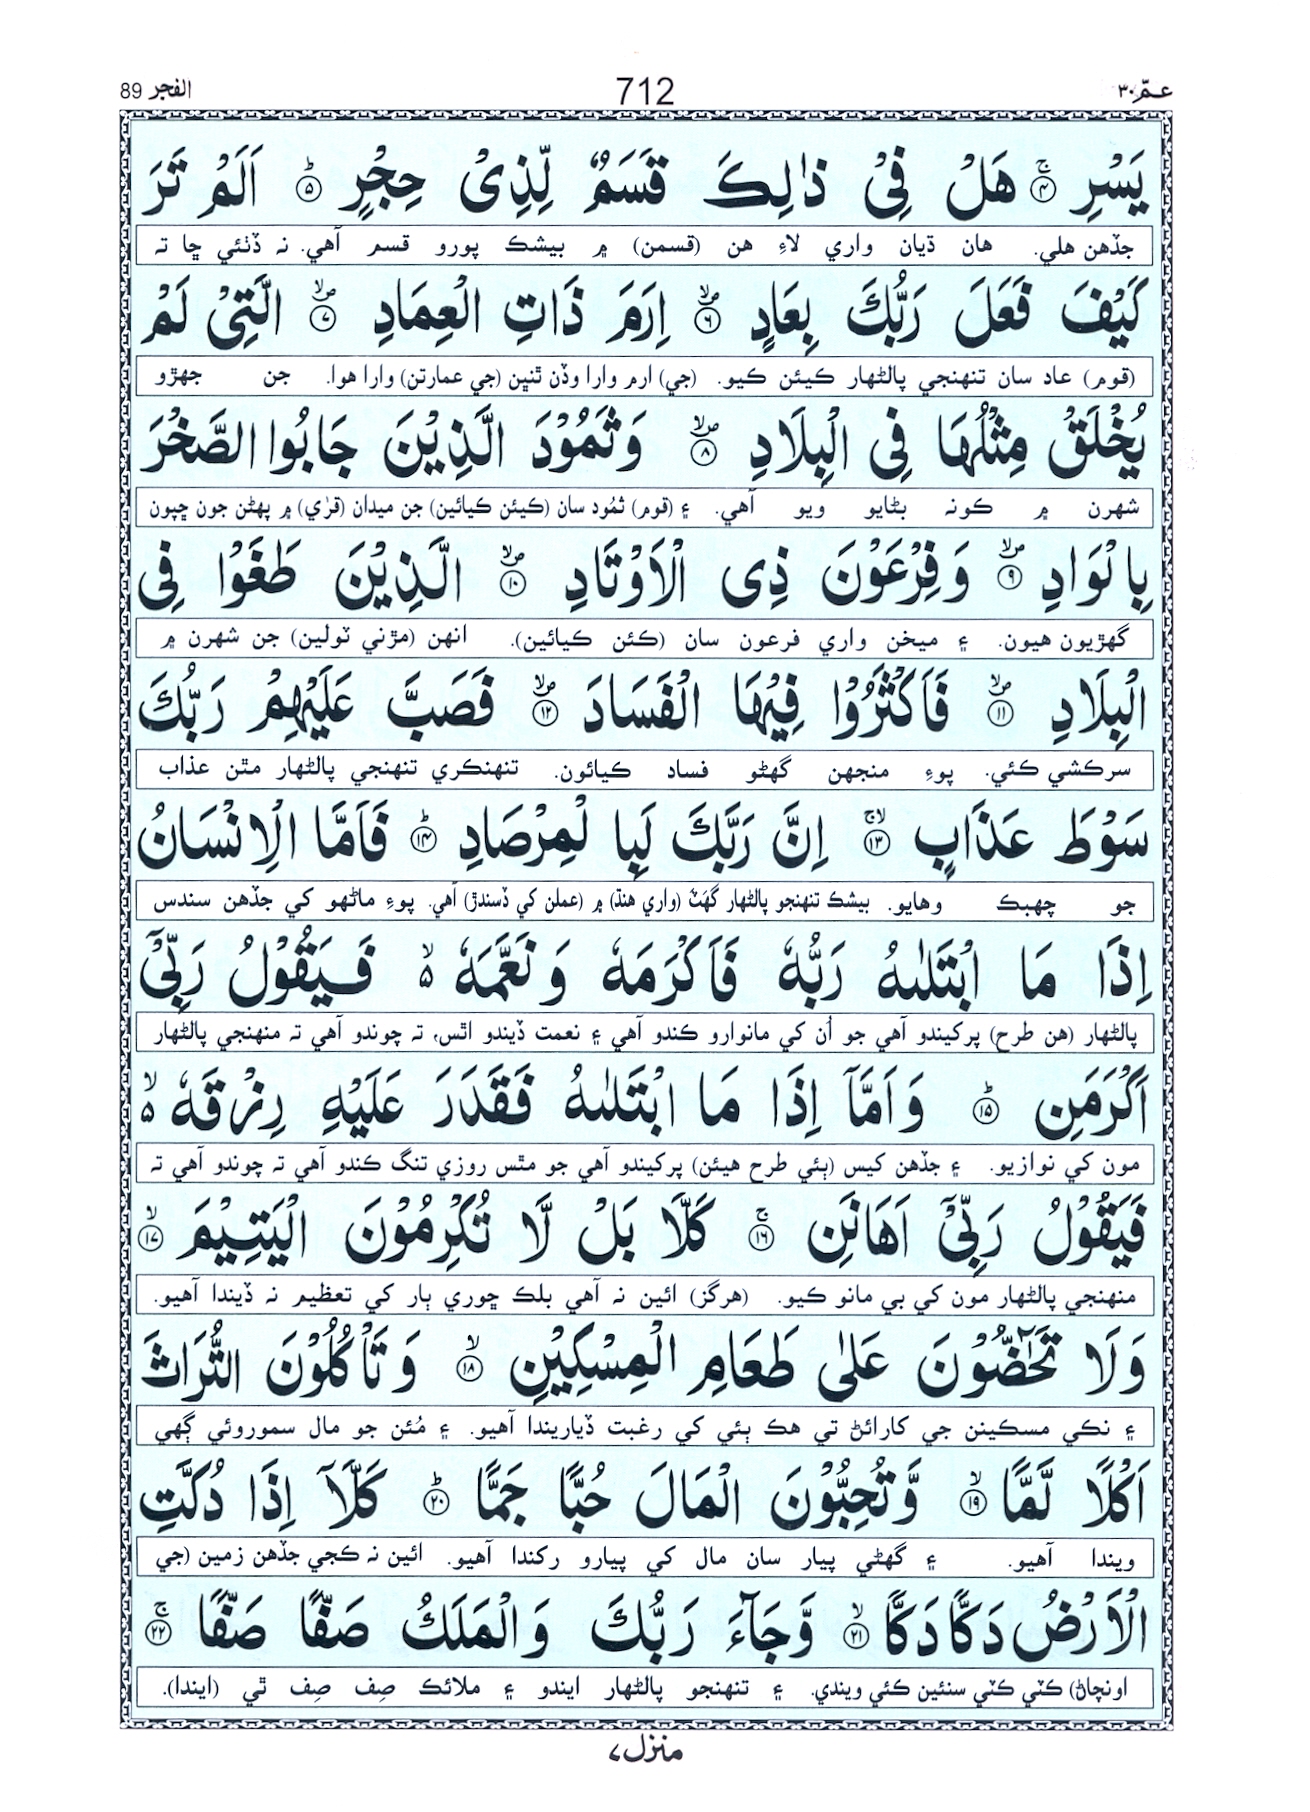 عـمّ ٣٠ 712 الفجر 89
يَسْرِ ۚ﴿۴﴾ هَلْ فِیْ ذٰلِكَ قَسَمٌ لِّذِیْ حِجْرٍ ؕ﴿۵﴾ اَلَمْ تَرَ
جڏهن هلي. هان ڌيان واري لاءِ هن (قسمن) ۾ بيشڪ پورو قسم آهي. نہ ڏٺئي ڇا تہ
كَیْفَ فَعَلَ رَبُّكَ بِعَادٍ ۪ۙ﴿۶﴾ اِرَمَ ذَاتِ الْعِمَادِ ۪ۙ﴿۷﴾ الَّتِیْ لَمْ
(قوم) عاد سان تنهنجي پالڻهار ڪيئن ڪيو. (جي) ارم وارا وڏن ٿنڀن (جي عمارتن) وارا هوا. جن جهڙو
یُخْلَقْ مِثْلُهَا فِی الْبِلَادِ ۪ۙ﴿۸﴾ وَثَمُوْدَ الَّذِیْنَ جَابُوا الصَّخْرَ
شهرن ۾ ڪونہ بڻايو ويو آهي. ۽ (قوم) ثمُود سان (ڪيئن ڪيائين) جن ميدان (قرٰي) ۾ پهڻن جون ڇپون
بِالْوَادِ ۪ۙ﴿۹﴾ وَفِرْعَوْنَ ذِی الْاَوْتَادِ ۪ۙ﴿۱۰﴾ الَّذِیْنَ طَغَوْا فِی
گهڙيون هيون. ۽ ميخن واري فرعون سان (ڪئن ڪيائين). انهن (مڙني ٽولين) جن شهرن ۾
الْبِلَادِ ۪ۙ﴿۱۱﴾ فَاَكْثَرُوْا فِیْهَا الْفَسَادَ ۪ۙ﴿۱۲﴾ فَصَبَّ عَلَیْهِمْ رَبُّكَ
سرڪشي ڪئي. پوءِ منجهن گهڻو فساد ڪيائون. تنهنڪري تنهنجي پالڻهار مٿن عذاب
سَوْطَ عَذَابٍ ۚۙ﴿۱۳﴾ اِنَّ رَبَّكَ لَبِالْمِرْصَادِ ؕ﴿۱۴﴾ فَاَمَّا الْاِنْسَانُ
جو چهبڪ وهايو. بيشڪ تنهنجو پالڻهار گهَٽَ (واري هنڌ) ۾ (عملن کي ڏسندڙ) آهي. پوءِ ماڻهو کي جڏهن سندس
اِذَا مَا ابْتَلٰىهُ رَبُّهٗ فَاَكْرَمَهٗ وَنَعَّمَهٗ ۙ۬ فَیَقُوْلُ رَبِّیْۤ
پالڻهار (هن طرح) پرکيندو آهي جو اُن کي مانوارو ڪندو آهي ۽ نعمت ڏيندو اٿس، تہ چوندو آهي تہ منهنجي پالڻهار
اَكْرَمَنِ ؕ﴿۱۵﴾ وَاَمَّاۤ اِذَا مَا ابْتَلٰىهُ فَقَدَرَ عَلَیْهِ رِزْقَهٗ ۙ۬
مون کي نوازيو. ۽ جڏهن کيس (ٻئي طرح هيئن) پرکيندو آهي جو مٿس روزي تنگ ڪندو آهي تہ چوندو آهي تہ
فَیَقُوْلُ رَبِّیْۤ اَهَانَنِ ۚ﴿۱۶﴾ كَلَّا بَلْ لَّا تُكْرِمُوْنَ الْیَتِیْمَ ۙ﴿۱۷﴾
منهنجي پالڻهار مون کي بي مانو ڪيو. (هرگز) ائين نہ آهي بلڪ ڇوري ٻار کي تعظيم نہ ڏيندا آهيو.
وَلَا تَحٰٓضُّوْنَ عَلٰی طَعَامِ الْمِسْكِیْنِ ۙ﴿۱۸﴾ وَتَاْكُلُوْنَ التُّرَاثَ
۽ نڪي مسڪينن جي کارائڻ تي هڪ ٻئي کي رغبت ڏياريندا آهيو. ۽ مُئن جو مال سموروئي ڳهي
اَكْلًا لَّمًّا ۙ﴿۱۹﴾ وَّتُحِبُّوْنَ الْمَالَ حُبًّا جَمًّا ؕ﴿۲۰﴾ كَلَّاۤ اِذَا دُكَّتِ
ويندا آهيو. ۽ گهڻي پيار سان مال کي پيارو رکندا آهيو. ائين نہ ڪجي جڏهن زمين (جي
الْاَرْضُ دَكًّا دَكًّا ۙ﴿۲۱﴾ وَّجَآءَ رَبُّكَ وَالْمَلَكُ صَفًّا صَفًّا ۚ﴿۲۲﴾
اونچاڻ) ڪٽي ڪٽي سنئين ڪئي ويندي. ۽ تنهنجو پالڻهار ايندو ۽ ملائڪ صِف صِف ٿي (ايندا).
منزل۷